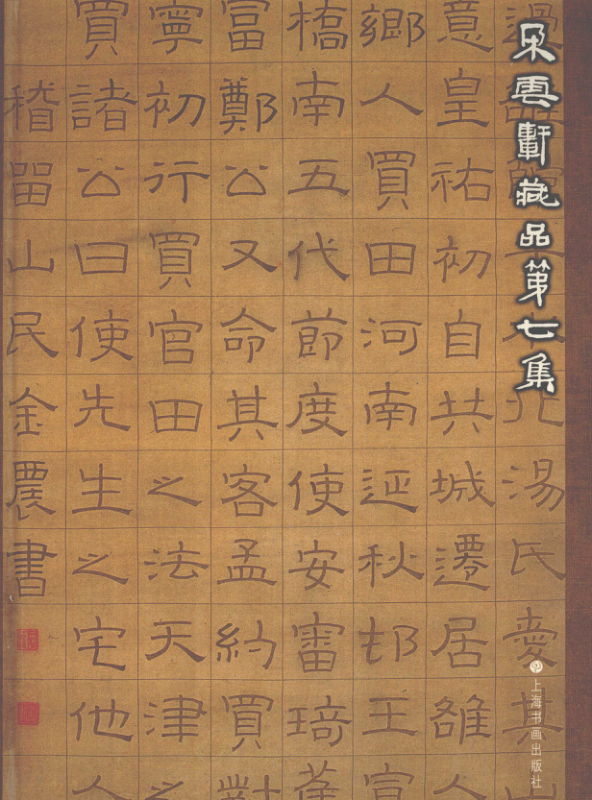 朵雲軒藏品第七集
北湯氏愛其山
意皇祐初自共城遷居雒人
鄉人買田河南延秋邨王宣
橋南五代節度使安審琦
富鄭公又命其客孟約買對
寧初行買官田之法天津之
買諸公曰使先生之宅他人
稽留山民金農書
上海书画出版社